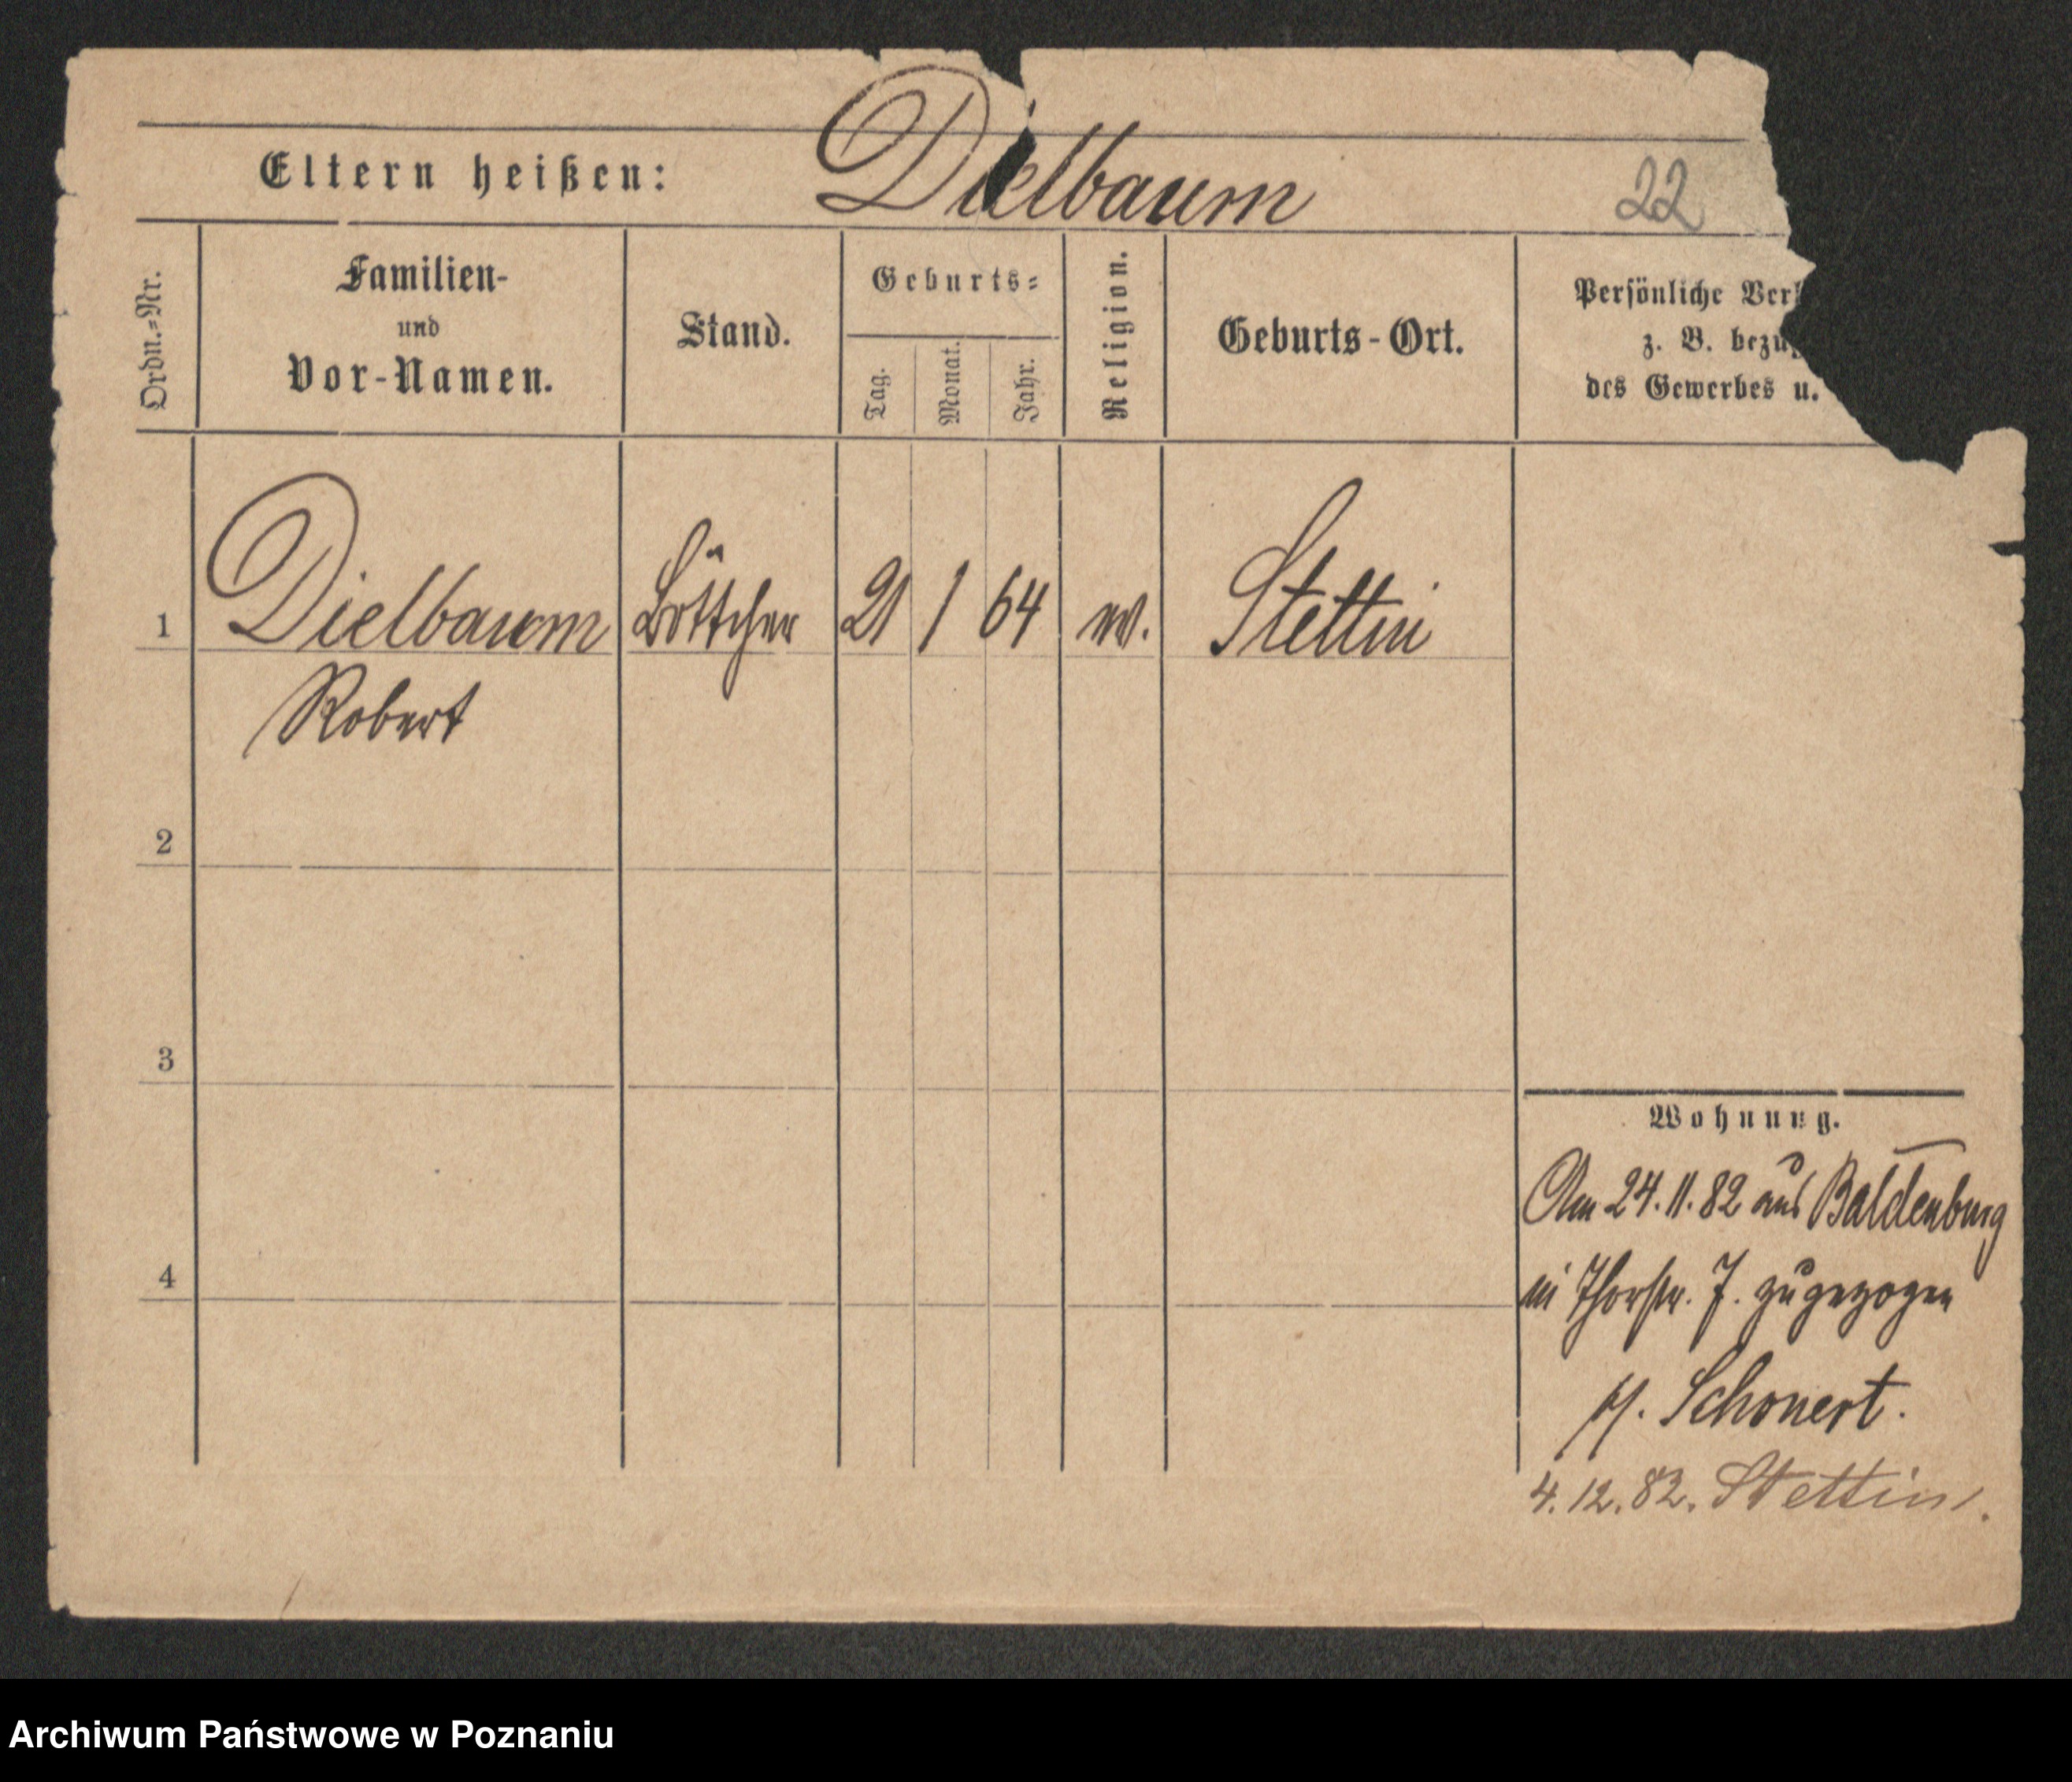 Eltern heißen: Dielbaum 22
Ordn.=Nr.
Familien-
und
Vor-Namen.
Stand.
Geburts=
Tag.
Monat.
Jahr.
Religion.
Geburts-Ort.
Persönliche
z. B.
des Gewerbes u.
1 Dielbaum Böttcher 21 1 64 ev. Stettin
Robert
2
3
4
Wohnung.
Am 24.11.82 aus Baldenburg
in Thorstr. 7. zugezogen
Schonert.
4.12.82. Stettin.
Archiwum Państwowe w Poznaniu